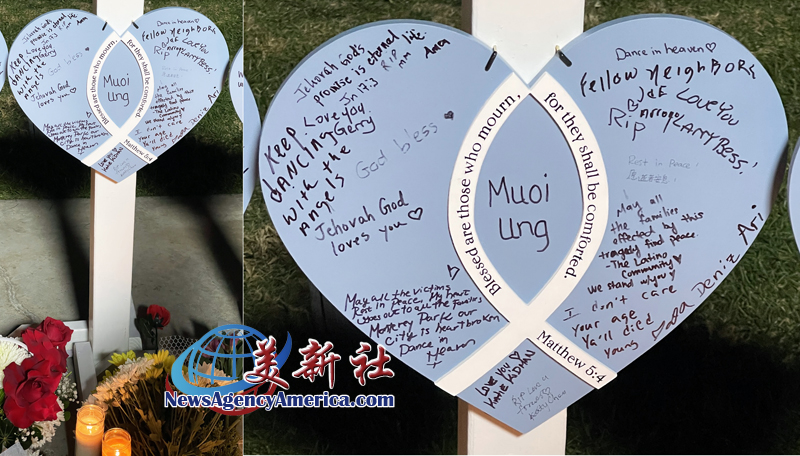 Jehovah God's
promise is eternal life.
Jn 17:3
RIP
mm
Area
KEEP
DANCING
WITH the
Angels
Love you
Gerry
God bless
Jehovah God
loves you ♡
May all the victims
Rest in Peace, My heart
goes out to all the families
Monterey Park our
City is heartbroken
Dance in
Heaven
Blessed are those who mourn,
for they shall be comforted.
Muoi
Ung
Matthew 5:4
Dance in heaven ♡
Fellow NeighBORh
LOVE YOU
RIP
Rest in Peace!
May all
the families
effected by this
tragedy find peace.
-The Latino
Community ♡
we stand w/you ♡
I don't care
your age
Ya'll died
young
Deniz Ari
LOVE YOU ♡
RIP
美新社
NewsAgencyAmerica.com